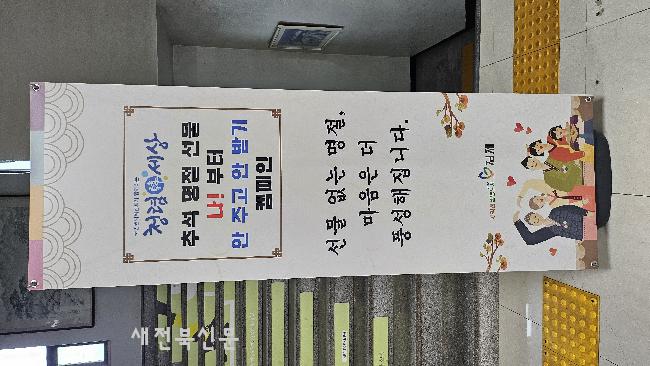 청렴 세상
추석 명절 선물
나! 부터
안 주고 안 받기
캠페인
선물 없는 명절,
마음은 더
풍성해집니다.
김제
새전북신문